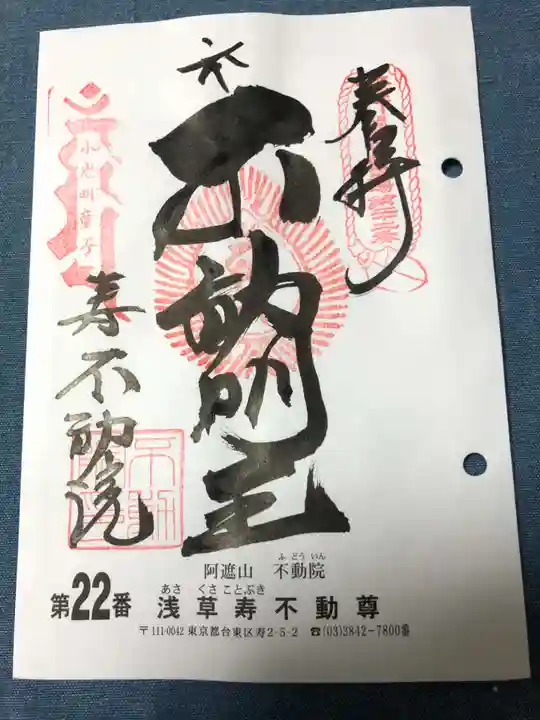 奉拝
不動明王
寿不動院
阿遮山 不動院
ふどういん
あさくさことぶき
第22番 浅草寿不動尊
〒111-0042 東京都台東区寿2-5-2 ☎(03)3842-7800番